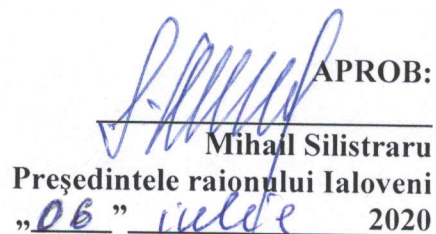 APROB:
Mihail Silistraru
Preşedintele raionului Ialoveni
„06” iulie 2020